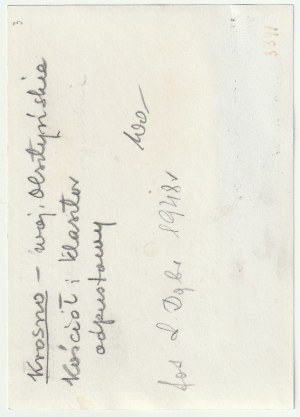 Krosno – woj. Olsztyńskie
Kościół i klasztor
odpustowy
fot 1948 r
3